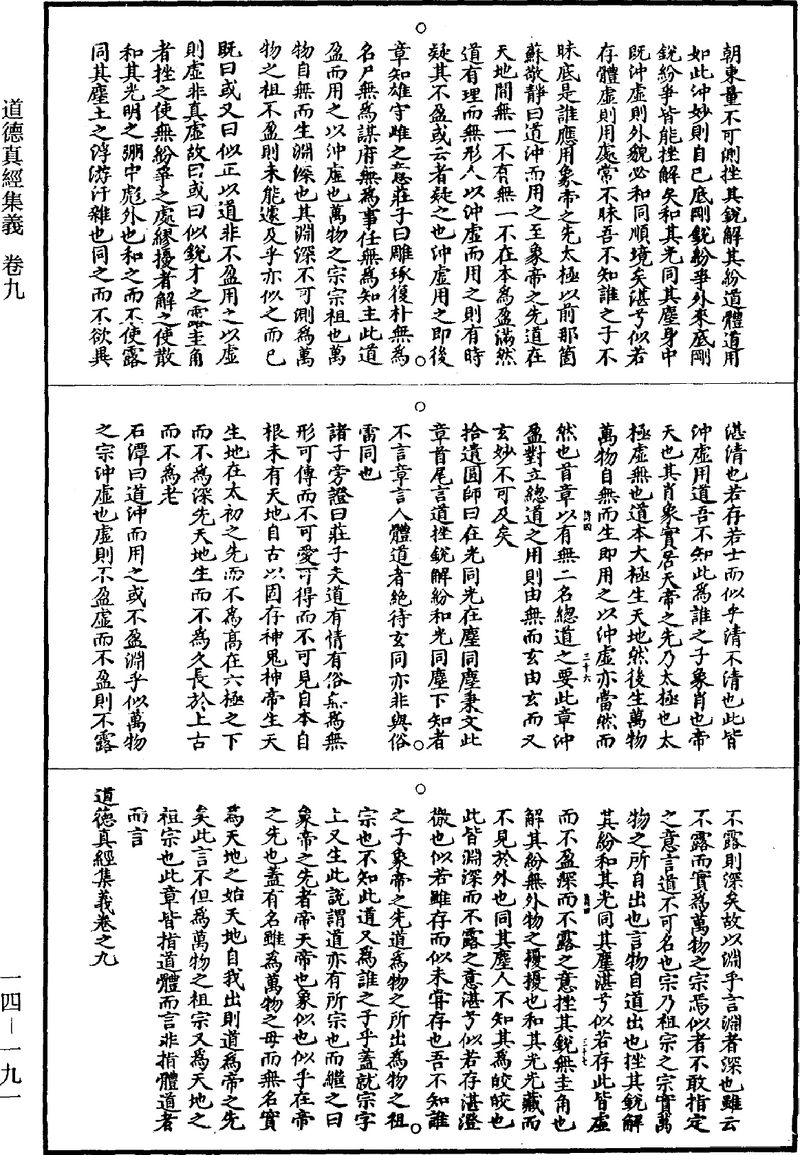 道德真經集義 卷九
朝東量不可測挫其銳解其紛道體道用
如此沖妙則自己底剛銳紛爭外來底剛
銳紛爭皆能挫解矣和其光同其塵身中
既沖虛則外貌必和同順境矣湛兮似若
存體虛則用處常不昧吾不知誰之子不
昧底是誰應用象帝之先太極以前那箇
蘇敬靜曰道沖而用之至象帝之先道在
天地間無一不有無一不在本為盈滿然
道有理而無形人以沖虛而用之則有時
疑其不盈或云者疑之也沖虛用之即後
章知雄守雌之意莊子曰雕琢復朴無為
名尸無為謀府無為事任無為知主此道
盈而用之以沖虛也萬物之宗宗祖也萬
物自無而生淵深也其淵深不可測為萬
物之祖不盈則未能遽及乎亦似之而已
既曰或又曰似正以道非不盈用之以虛
則虛非真虛故曰或曰似銳才之露圭角
者挫之使無紛爭之處繆擾者解之使散
和其光明之弸中彪外也和之而不使露
同其塵土之浮游汙雜也同之而不欲異
湛清也若存若士而似乎清不清也此皆
沖虛用道吾不知此為誰之子象肖也帝
天也其肖象實居天帝之先乃太極也太
極虛無也道本大極生天地然後生萬物
萬物自無而生即用之以沖虛亦當然而
然也首章以有無二名總道之要此章沖
盈對立總道之用則由無而玄由玄而又
玄妙不可及矣
拾遺圓師曰在光同光在塵同塵秉文此
章首尾言道挫銳解紛和光同塵下知者
不言章言人體道者絶待玄同亦非與俗
雷同也
諸子旁證曰莊子夫道有情有俗無為無
形可傳而不可愛可得而不可見自本自
根未有天地自古以固存神鬼神帝生天
生地在太初之先而不為高在六極之下
而不為深先天地生而不為久長於上古
而不為老
石潭曰道沖而用之或不盈淵乎似萬物
之宗沖虛也虛則不盈虛而不盈則不露
不露則深矣故以淵乎言淵者深也雖云
不露而實為萬物之宗焉似者不敢指定
之意言道不可名也宗乃祖宗之宗實萬
物之所自出也言物自道出也挫其銳解
其紛和其光同其塵湛兮似若存此皆虛
而不盈深而不露之意挫其銳無圭角也
解其紛無外物之擾擾也和其光光藏而
不見於外也同其塵人不知其為皎皎也
此皆淵深而不露之意湛兮似若存湛澄
徹也似若雖存而似未嘗存也吾不知誰
之子象帝之先道為物之所出為物之祖
宗也不知此道又為誰之子乎蓋就宗字
上又生此說謂道亦有所宗也而繼之曰
象帝之先者帝天帝也象似也似乎在帝
之先也蓋有名雖為萬物之母而無名實
為天地之始天地自我出則道為帝之先
矣此言不但為萬物之祖宗又為天地之
祖宗也此章皆指道體而言非指體道者
而言
道德真經集義卷之九
一四—一九一